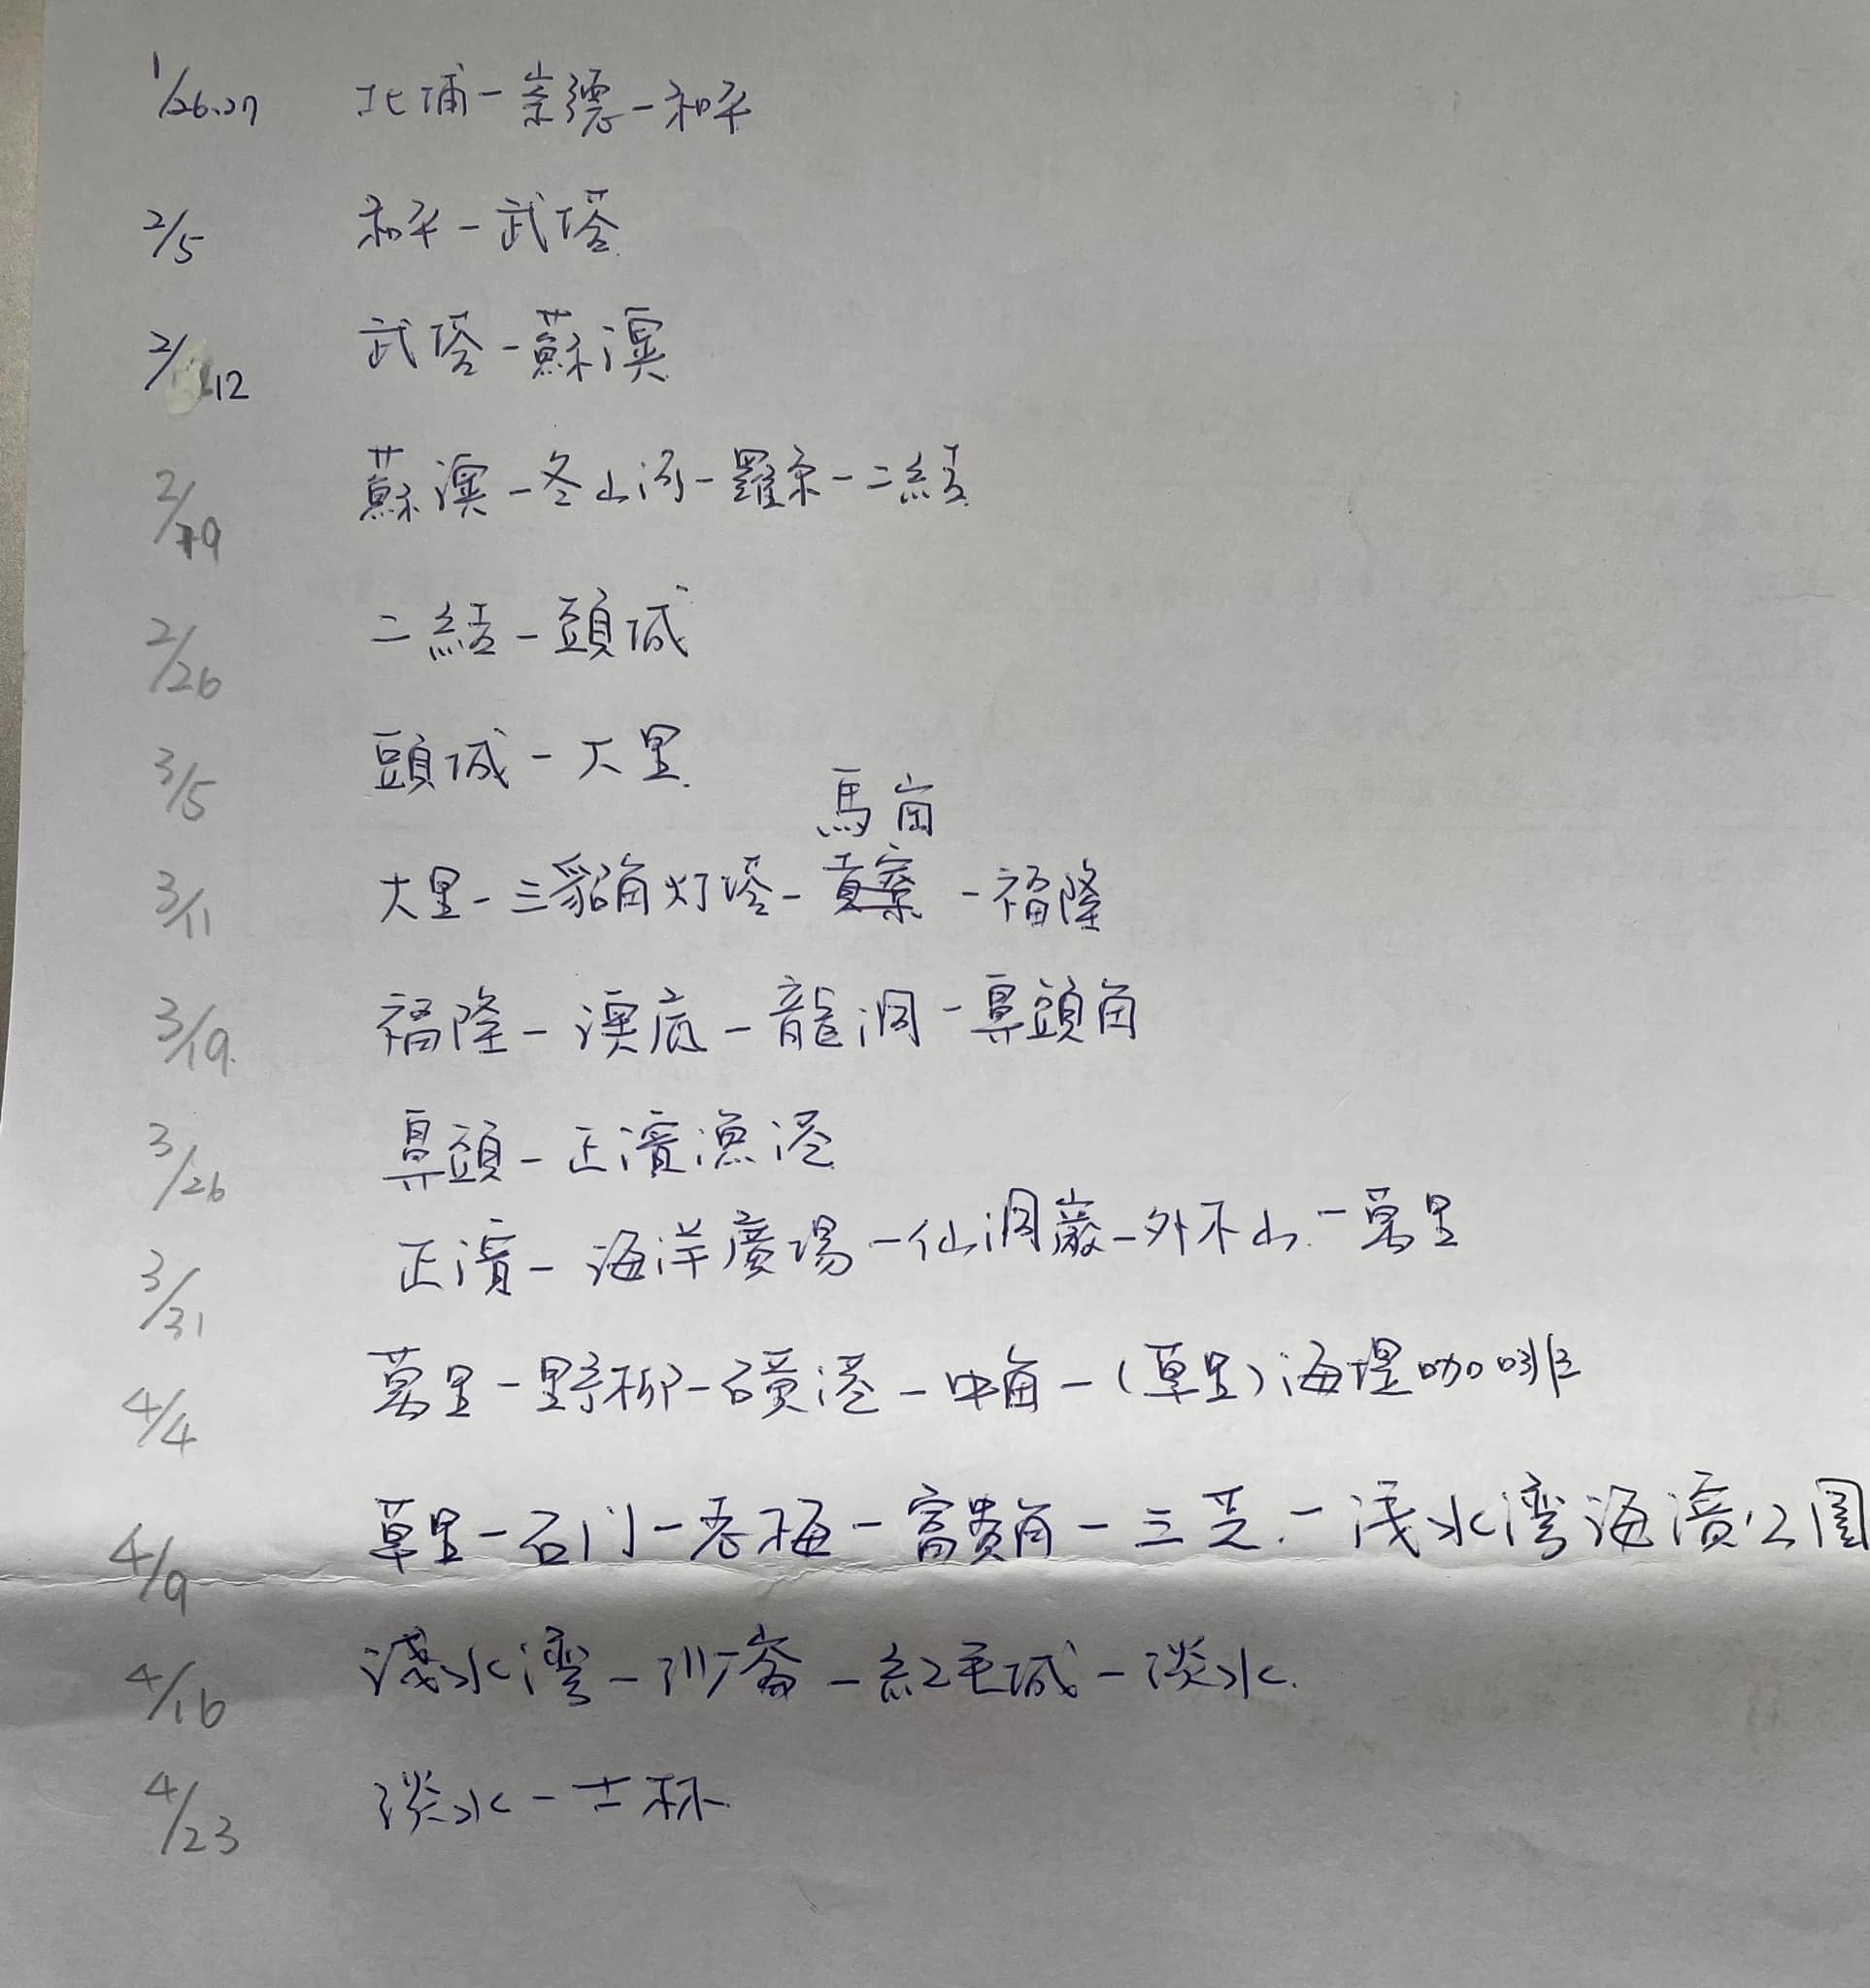 1/26.27 北埔-崇德-和平
2/5 和平-武塔
2/12 武塔-蘇澳
2/19 蘇澳-冬山河-羅東-二結
2/26 二結-頭城
3/5 頭城-大里
馬崗
3/11 大里-三貂角灯塔-貢寮-福隆
3/19. 福隆-澳底-龍洞-鼻頭角
3/26 鼻頭-正濱漁港
3/31 正濱-海洋廣場-仙洞巖-外木山-萬里
4/4 萬里-野柳-磺港-中角-(草里)海堤咖啡
4/9 草里-石门-老梅-富貴角-三芝-浅水湾海濱公園
4/16 淺水湾-沙崙-紅毛城-淡水.
4/23 淡水-士林